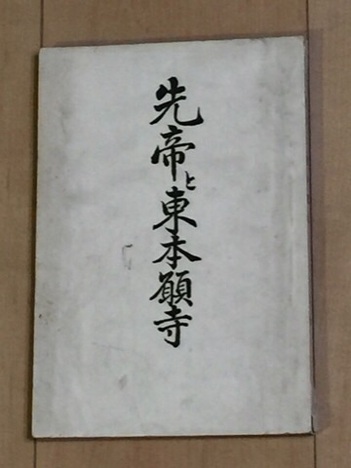 先帝と東本願寺